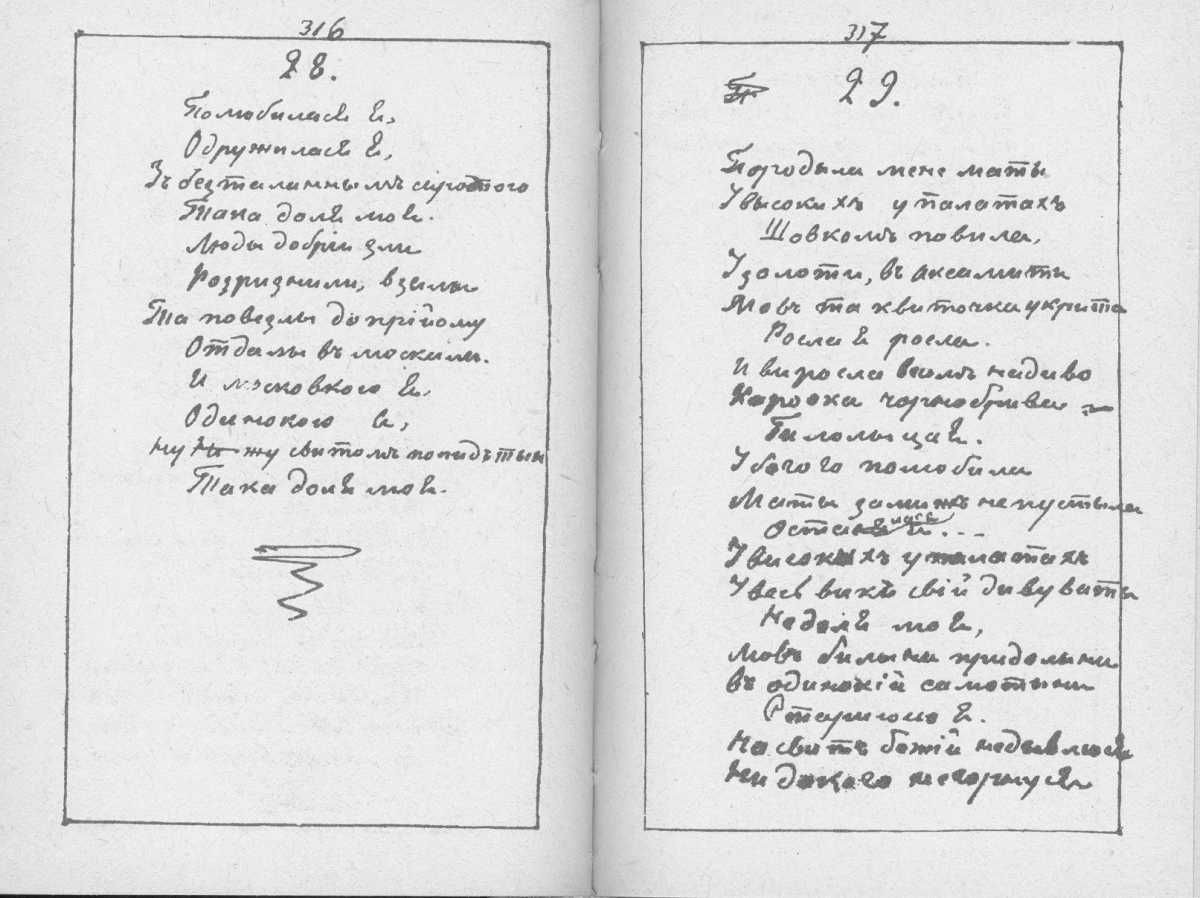 316
28.
Полюбилася я,
Одружилася я,
Зъ безталаннымъ сиротого
Така доля моя.
Люды добріи зли
Розризнили, взялы
Та повезлы до прійому
Отдалы въ москали.
И московкою я,
Одинокою я,
жу свитомъ
Така доля моя.
317
29.
Породыла мене маты
У высокихъ у палатахъ
Шовкомъ повила,
У золоти, въ аксамити
Мовъ та квиточка укрита
Росла я росла.
И виросла всимъ на диво
Кароока чорнобрива
Билолыцая.
Убогого полюбила
Маты замижъ не пустыла
Осталась я...
У високихъ у палатахъ
Увесь викъ свій дивувати
Недоля моя,
Мовъ былына при долыни
въ одинокій самотыни
Старіюсь я.
На свитъ божій не дывлюся
Ни до кого не горнуся